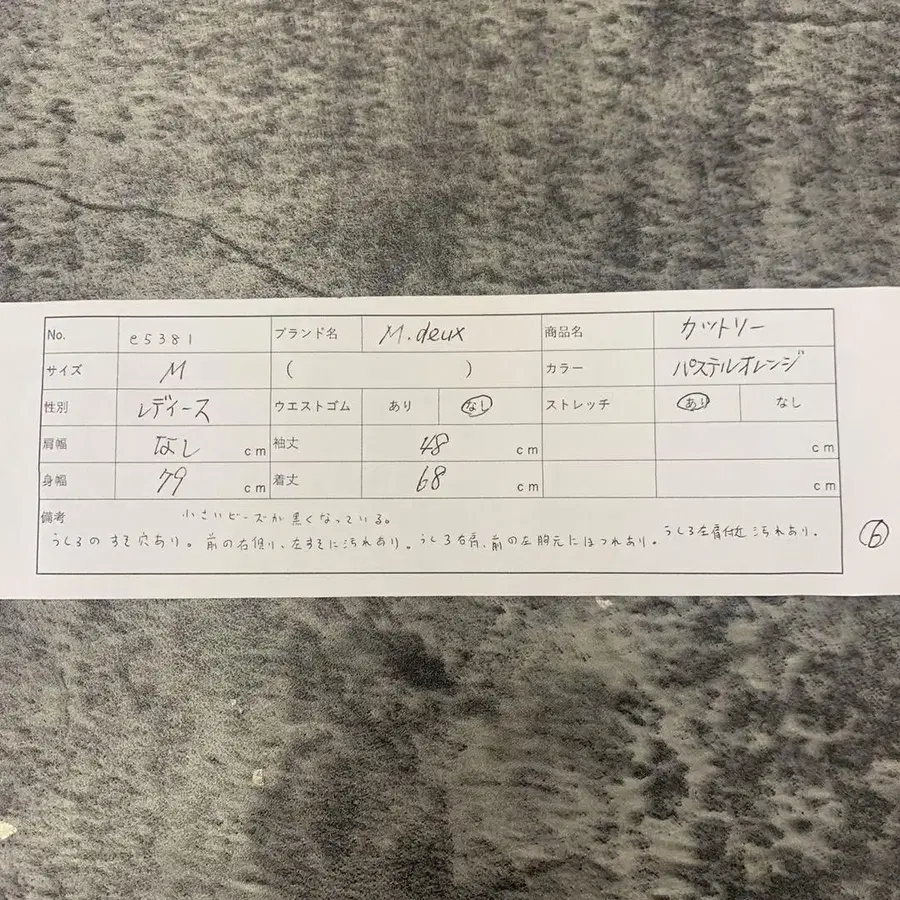 No. e5381 ブランド名 M.deux 商品名 カットソー
サイズ M ( ) カラー パステルオレンジ
性別 レディース ウエストゴム あり なし ストレッチ あり なし
肩幅 なし cm 袖丈 48 cm cm
身幅 79 cm 着丈 68 cm cm
備考 小さいビーズが黒くなっている。
うしろのすそ穴あり。前の右側り、左すそに汚れあり。うしろ右肩、前の左胸元にほつれあり。うしろ左肩付近汚れあり。
6